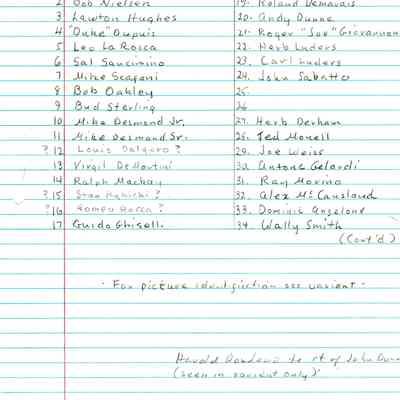 2 Bob Nielsen 19. Roland Demarais
3 Lawton Hughes 20. Andy Dunne
4 "Duke" Dupuis 21. Roger "Joe" Giovannon
5 Leo La Rosca 22. Herb Luders
6 Sal Sancimino 23. Carl Luders
7 Mike Scafani 24. John Sabatte
8 Bob Oakley 25.
9 Bud Sterling 26
10 Mike Desmond Jr. 27. Herb Derham
11 Mike Desmond Sr. 28. Ted Monell
? 12 Louis Salgaro ? 29. Joe Weiss
13 Virgil DeMartini 30. Antone Gelardi
14 Ralph Machay 31. Ray Marino
? 15 Stan ? 32. Alex McCausland
? 16 Romeo Rocca ? 33. Dominic Angelone
17 Guido Ghiselli 34. Wally Smith
(Cont'd)
- For picture see varient -
Harold to rt of John
(seen in varient only)